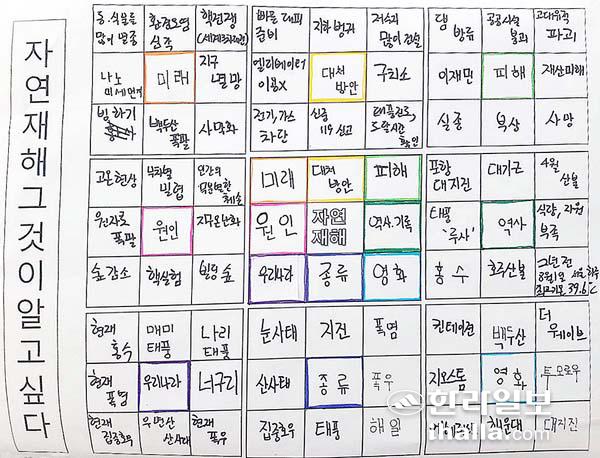 자연재해 그것이 알고 싶다
동·식물들 많이 멸종
환경오염 심각
핵전쟁
(세계3차대전)
나노 미세먼지
미래
지구 멸망
빙하기
백두산 폭팔
사막화
빠른 대피 준비
지하 벙커
저수지 많이 건설
엘리베이터 이용X
대처 방안
구치소
전기, 가스 차단
신종 119 신고
태풍진로, 도달시간 확인
댐 방류
공공시설 붕괴
고대유적 파괴
이재민
피해
재산피해
실종
부상
사망
고온현상
무차별 밀렵
원자로 폭팔
원인
지구온난화
숲 감소
핵실험
빌딩 숲
미래
대처 방안
피해
원인
자연 재해
역사·기록
우리나라
종류
영화
포항 대지진
대기근
4월 산불
태풍 '루사'
역사
식량, 자원 부족
홍수
호주산불
최고기온 39.6℃
현재 홍수
매미 태풍
나리 태풍
현재 폭염
우리나라
너구리
현재 집중호우
우면산 산사태
현재 폭우
눈사태
지진
폭염
산사태
종류
폭우
집중호우
태풍
해일
컨테이젼
백두산
더 웨이브
지오스톰
영화
투모로우
해운대
대지진
한라일보
ihalla.com